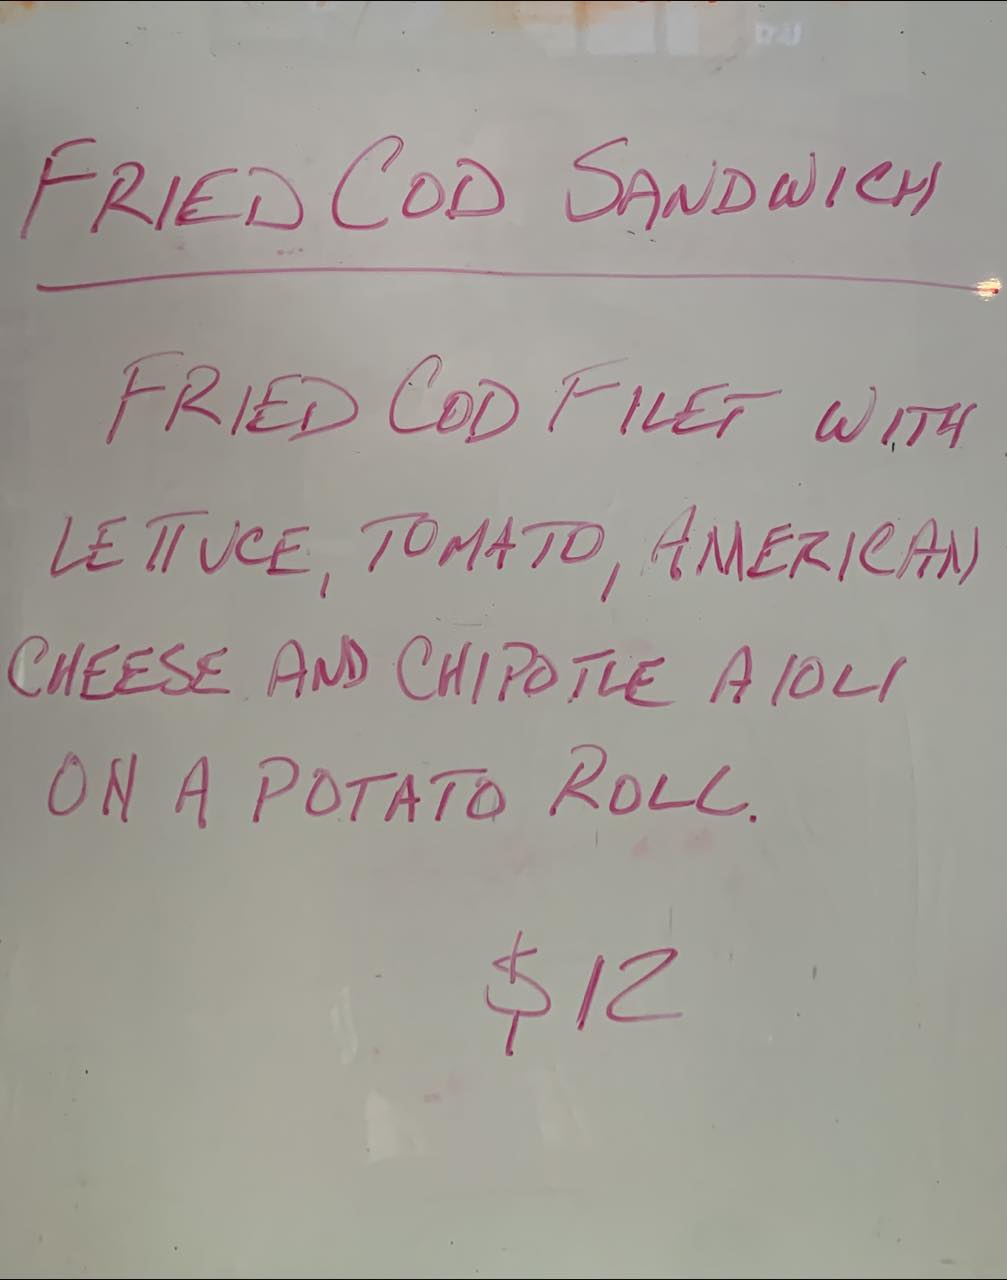 FRIED COD SANDWICH
FRIED COD FILET WITH
LETTUCE, TOMATO, AMERICAN
CHEESE AND CHIPOTLE AIOLI
ON A POTATO ROLL.
$12